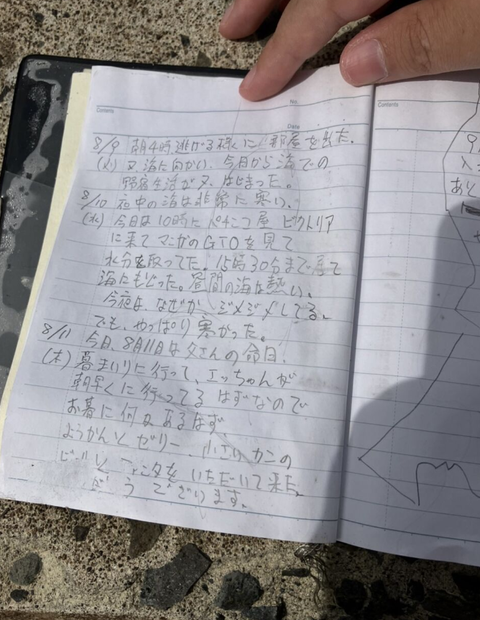 Contents
No.
Date
8/9 朝4時逃げる様に部屋を出た。
(火) 又、海に向かい、今日から海での
野宿生活が又、はじまった。
8/10 夜中の海は非常に寒い。
(水) 今日は10時にパチンコ屋 ビクトリア
に来てマンガのGTOを見て
水分を取ってた。12時30分まで居て
海にもどった。昼間の海は熱い。
今夜は なぜか ジメジメしてる。
でも、やっぱり寒かった。
8/11 今日、8月11日は父さんの命日。
(木) 墓まいりに行って、エッちゃんが
朝早くに行ってる はずなので
お墓に何かあるはず
ようかんと ゼリー 小さい カンの
ビールと をいただいて来た。
ございます。
Contents